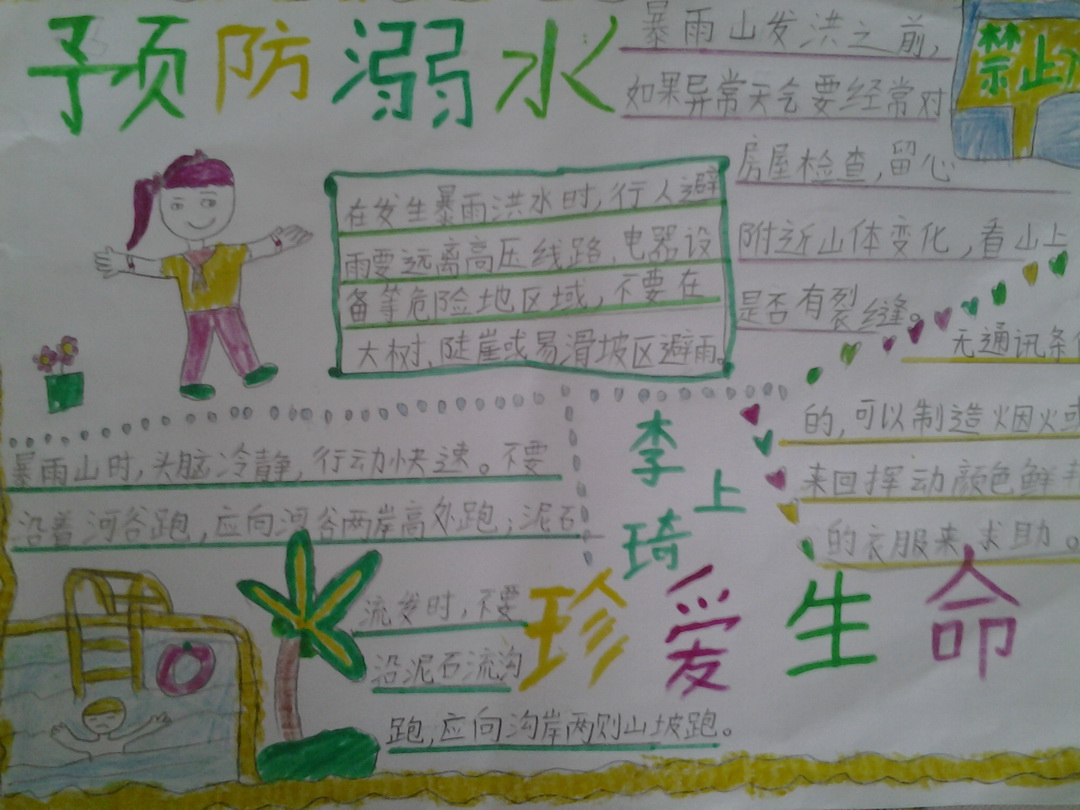 预防溺水
暴雨山发洪之前，
如果异常天气要经常对
房屋检查，留心
附近山体变化，看山上
是否有裂缝。
禁止
在发生暴雨洪水时，行人避
雨要远离高压线路、电器设
备等危险地区域，不要在
大树、陡崖或易滑坡区避雨。
无通讯条件
的，可以制造烟火或
来回挥动颜色鲜
的衣服来求助。
暴雨山时，头脑冷静，行动快速。不要
沿着河谷跑，应向河谷两岸高处跑；泥石
流发时，不要
沿泥石流沟
跑，应向沟岸两则山坡跑。
李上琦
珍爱生命